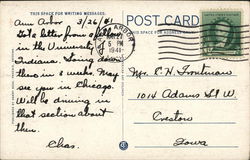 THIS SPACE FOR WRITING
POST CARD
THIS SPACE FOR ADDRESS ONLY
Ann Arbor 3/26/41
Got a letter from a fellow
in the University
Indiana. Going down
there in 3 weeks. May
see you in Chicago.
Will be driving in
that section about
then.
Chas.
ANN ARBOR
MAR 27
5 PM
1941
Mr. C. H. Troutman
1014 Adams St W.
Creston
Iowa